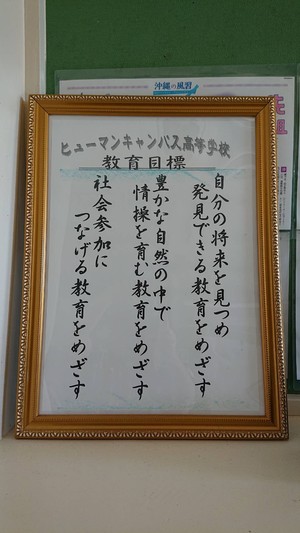 沖縄の風習
ヒューマンキャンパス高等学校
教育目標
自分の将来を見つめ
発見できる教育をめざす
豊かな自然の中で
情操を育む教育をめざす
社会参加に
つなげる教育をめざす